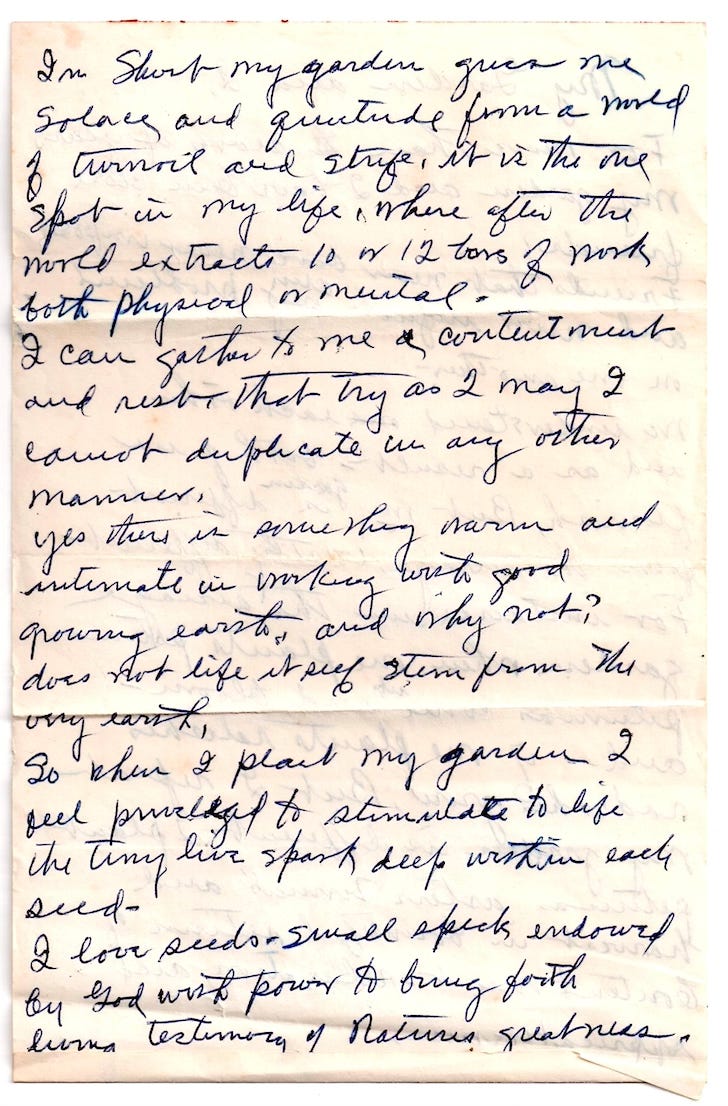 In Short my garden gives me
Solace, and quietude from a world
of turmoil and strife, it is the one
spot in my life, where after the
world extracts 10 or 12 hors of work
both physical or mental.
I can gather to me a contentment
and rest, that try as I may I
cannot duplicate in any other
manner.
yes there is something warm and
intimate in working with good
growing earth, and why not?
does not life itself stem from the
very earth,
So when I plant my garden I
feel priveleged to stimulate to life
the tiny live spark deep within each
seed-
I love seeds-small specks endowed
by God with power to bring forth
living testimony of Natures greatness.